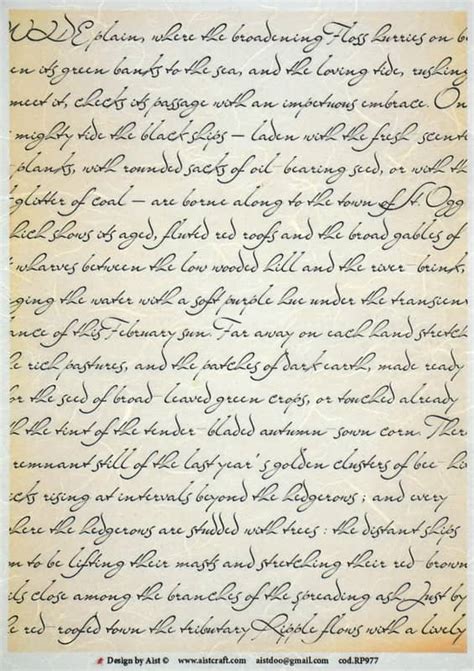 WIDE plain, where the broadening Floss hurries on b
en its green banks to the sea, and the loving tide, rushing
meet it, checks its passage with an impetuous embrace. On
mighty tide the black ships – laden with the fresh-scente
planks, with rounded sacks of oil-bearing seed, or with th
glitter of coal – are borne along to the town of St. Ogg
hich shows its aged, fluted red roofs and the broad gables of
wharves between the low wooded hill and the river-brink,
ging the water with a soft purple hue under the transien
ance of this February sun. Far away on each hand stretch
e rich pastures, and the patches of dark earth, made ready
or the seed of broad-leaved green crops, or touched already
h the tint of the tender-bladed autumn-sown corn. Ther
remnant still of the last year's golden clusters of bee-hi
cks rising at intervals beyond the hedgerows; and every
here the hedgerows are studded with trees: the distant ships
m to be lifting their masts and stretching their red-brown
ils close among the branches of the spreading ash. Just by
e red-roofed town the tributary Ripple flows with a lively
Design by Aist © www.aistcraft.com aistdoo@gmail.com cod.RP977